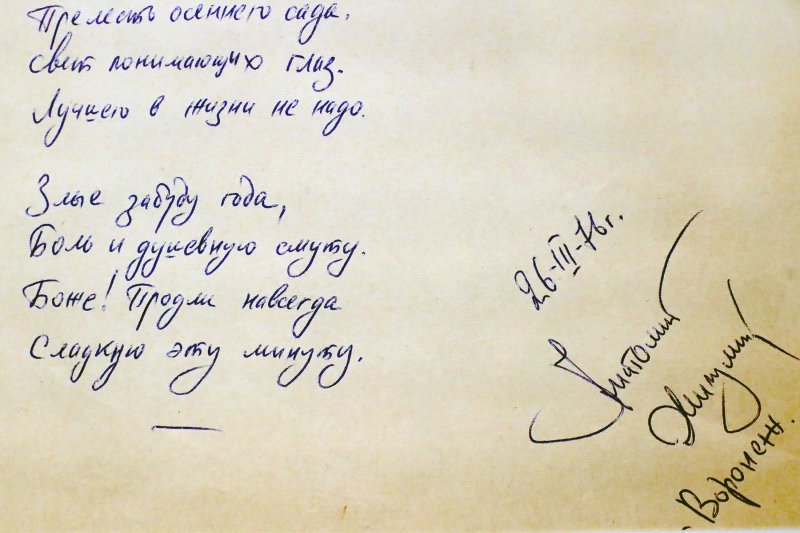 Прелесть осеннего сада,
Свет понимающих глаз.
Лучшего в жизни не надо.
Злые забуду года,
Боль и душевную смуту.
Боже! Продли навсегда
Сладкую эту минуту.
26-III-76г.
Анатолий
Жигулин
г. Воронеж.